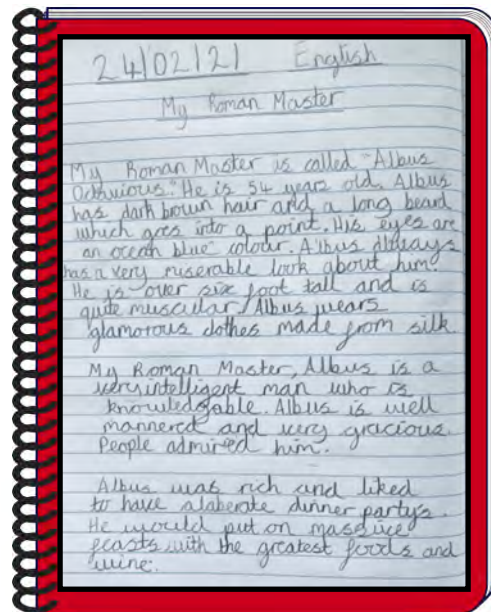 24/02/21 English
My Roman Master
My Roman Master is called "Albus
Octavious." He is 54 years old. Albus
has dark brown hair and a long beard
which goes into a point. His eyes are
an ocean blue colour. Albus always
has a very miserable look about him.
He is over six foot tall and is
quite muscular. Albus wears
glamorous clothes made from silk.
My Roman Master, Albus is a
very intelligent man who is
knowledgable. Albus is well
mannered and very gracious.
People admired him.
Albus was rich and liked
to have alaberate dinner partys.
He would put on massive
feasts with the greatest foods and
wine.